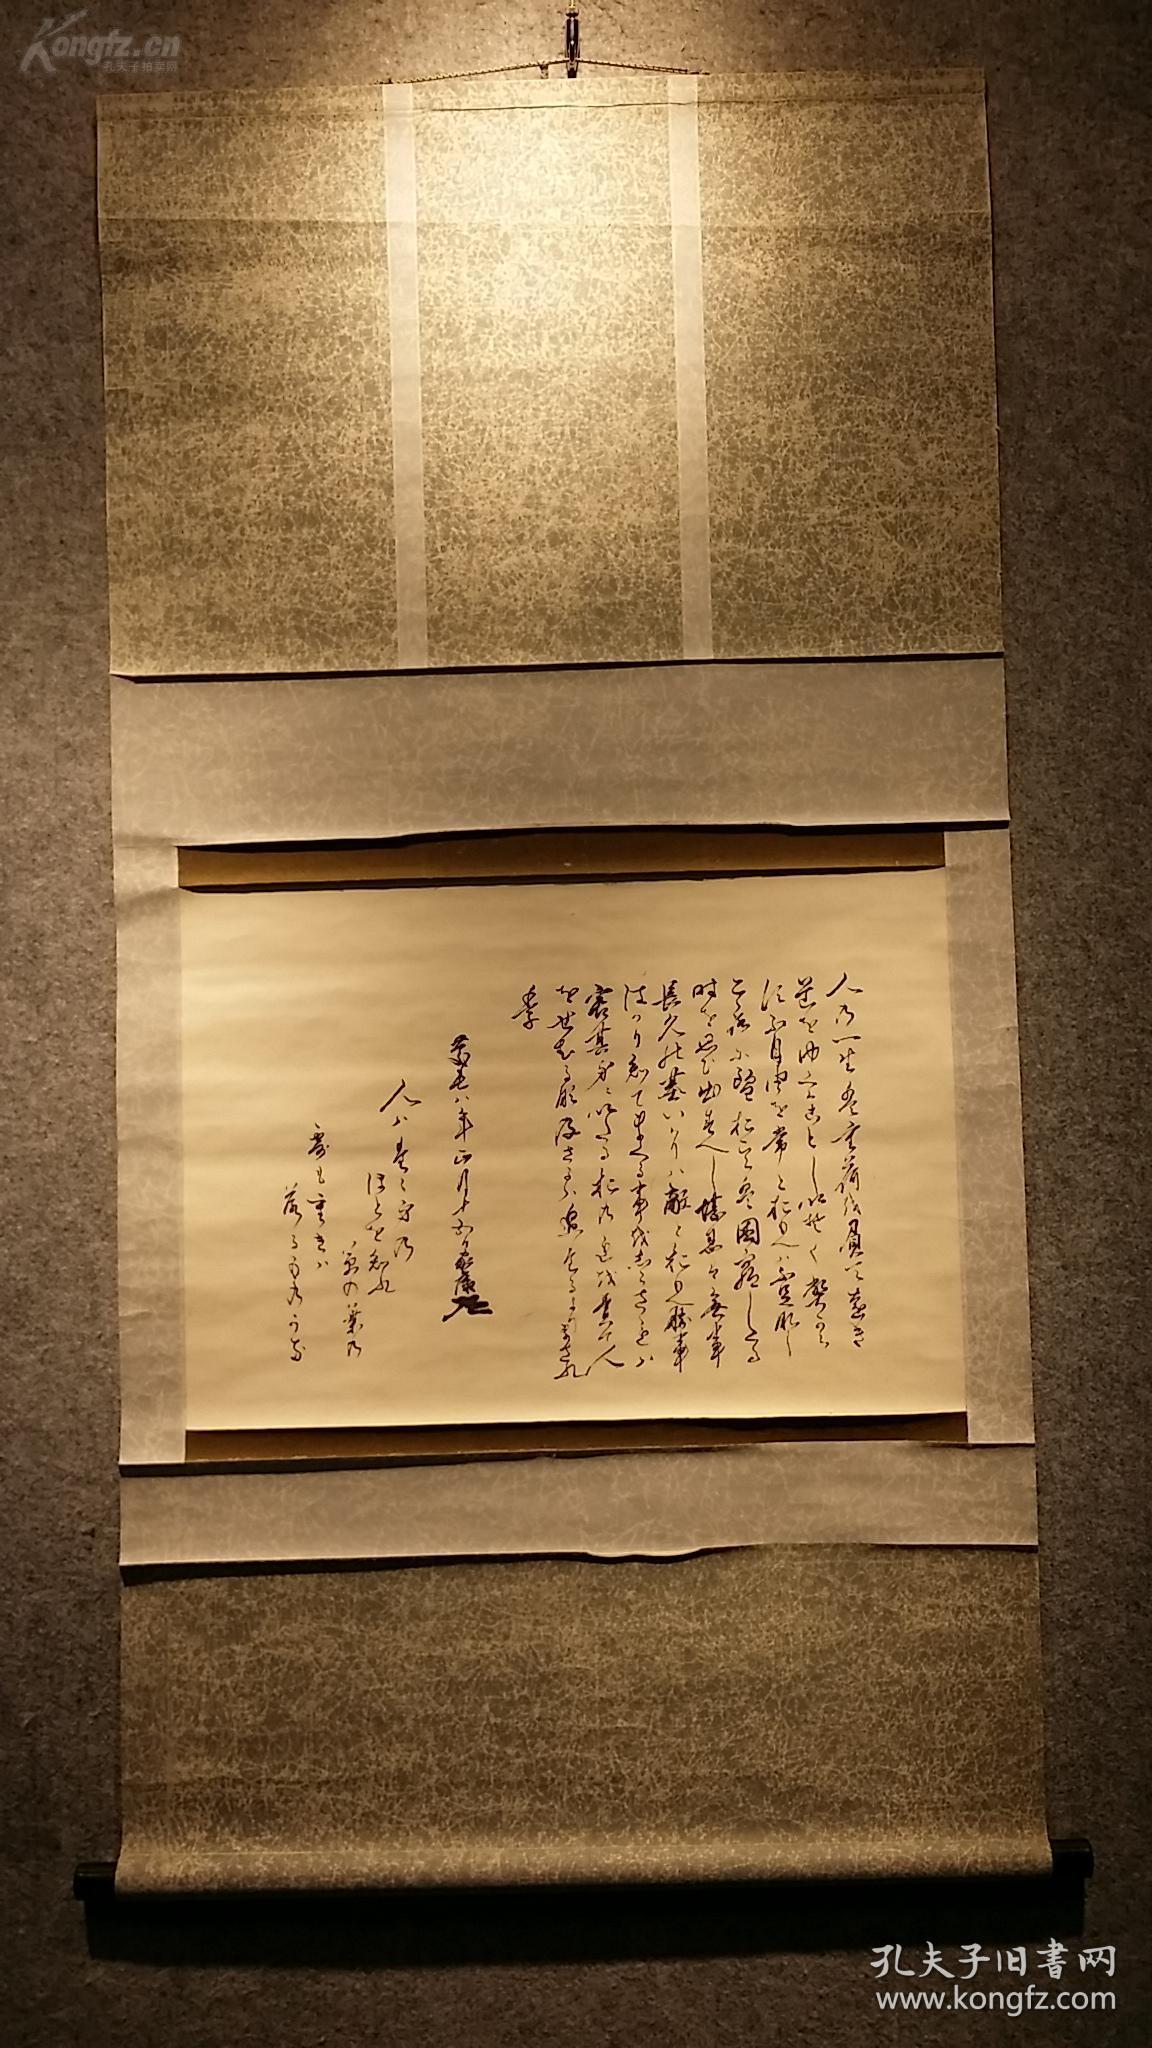 Kongfz.cn
孔夫子拍卖网
人の一生は重荷を負て遠き
道をゆくかことしいそくへから
す不自由を常とおもへは不足なし
こころに望おこらは困窮したる
時を思ひ出すへし堪忍は無事
長久の基いかりは敵とおもへ勝事
はかり知てまくる事をしらされは
害其身にいたるおのれを責て人
をせむるな及はさるは過たるよりまされ
り
慶長八年正月十五日家康
人はたた身の
ほとを知れ
草の葉の
露も重きは
落るものかな
孔夫子旧書网
www.kongfz.com